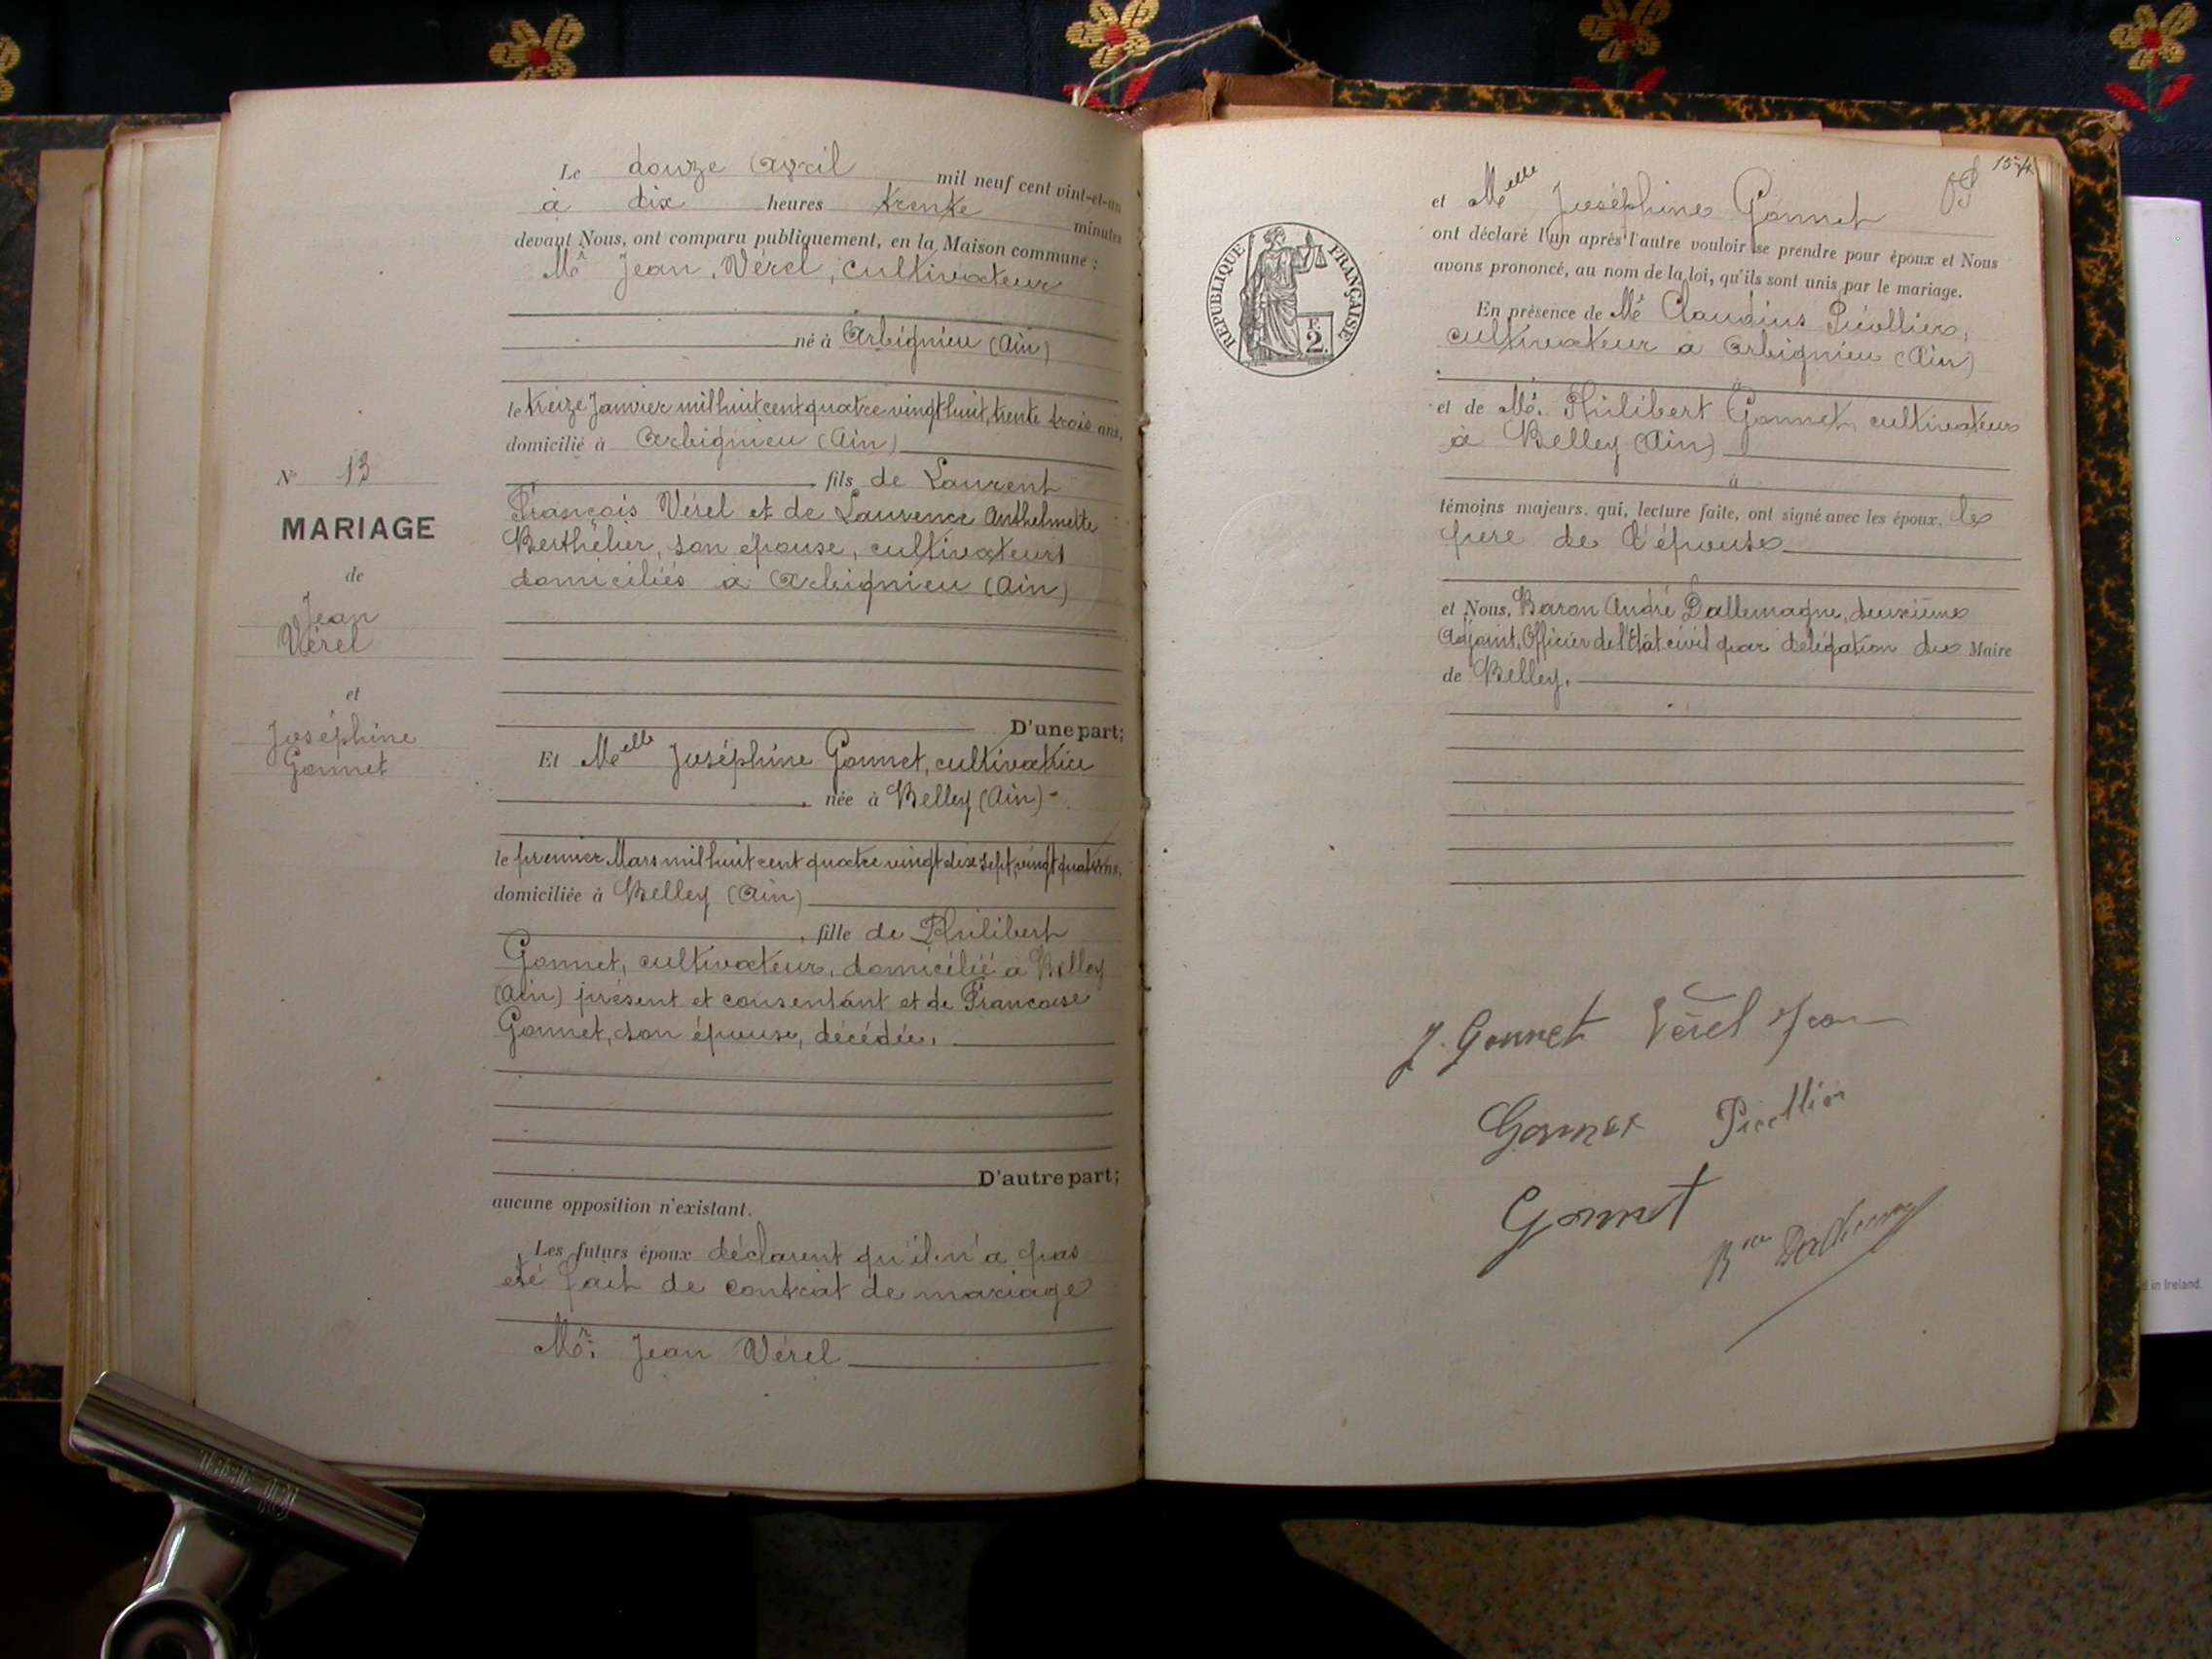 Le douze Avril mil neuf cent vint-et-un
à dix heures trente minutes
devant Nous, ont comparu publiquement, en la Maison commune :
Mr Jean Vérel, cultivateur
né à Arbignieu (Ain)
le treize Janvier mil huit cent quatre vingt huit, trente trois ans,
domicilié à Arbignieu (Ain)
N° 13
fils de Laurent
François Vérel et de Laurence Anthelmette
MARIAGE
Berthelier, son épouse, cultivateurs
de
domiciliés à Arbignieu (Ain)
Jean
Vérel
et
D'une part;
Joséphine
Gonnet
Et Melle Joséphine Gonnet, cultivatrice
née à Belley (Ain)
le premier Mars mil huit cent quatre vingt dix sept, vingt quatre ans,
domiciliée à Belley (Ain)
fille de Philibert
Gonnet, cultivateur, domicilié à Belley
(Ain) présent et consentant et de Francoise
Gonnet, son épouse, décédée.
D'autre part;
aucune opposition n'existant.
Les futurs époux déclarent qu'il n'a pas
été fait de contrat de mariage
Mr. Jean Vérel
et Melle Joséphine Gonnet
ont déclaré l'un après l'autre vouloir se prendre pour époux et Nous
avons prononcé, au nom de la loi, qu'ils sont unis par le mariage.
REPUBLIQUE FRANÇAISE
F.
2.
En présence de Mr Claudius
cultivateur à Arbignieu (Ain)
à
et de Mr. Philibert Gonnet, cultivateur
à Belley (Ain)
à
témoins majeurs. qui, lecture faite, ont signé avec les époux, le
père de l'épouse
et Nous, Baron André Dallemagne, deuxième
Adjoint, Officier de l'Etat civil par délégation du Maire
de Belley.
J. Gonnet Vérel Jean
Gonnet
Gonnet
Bon Dallemagne
d in Ireland.